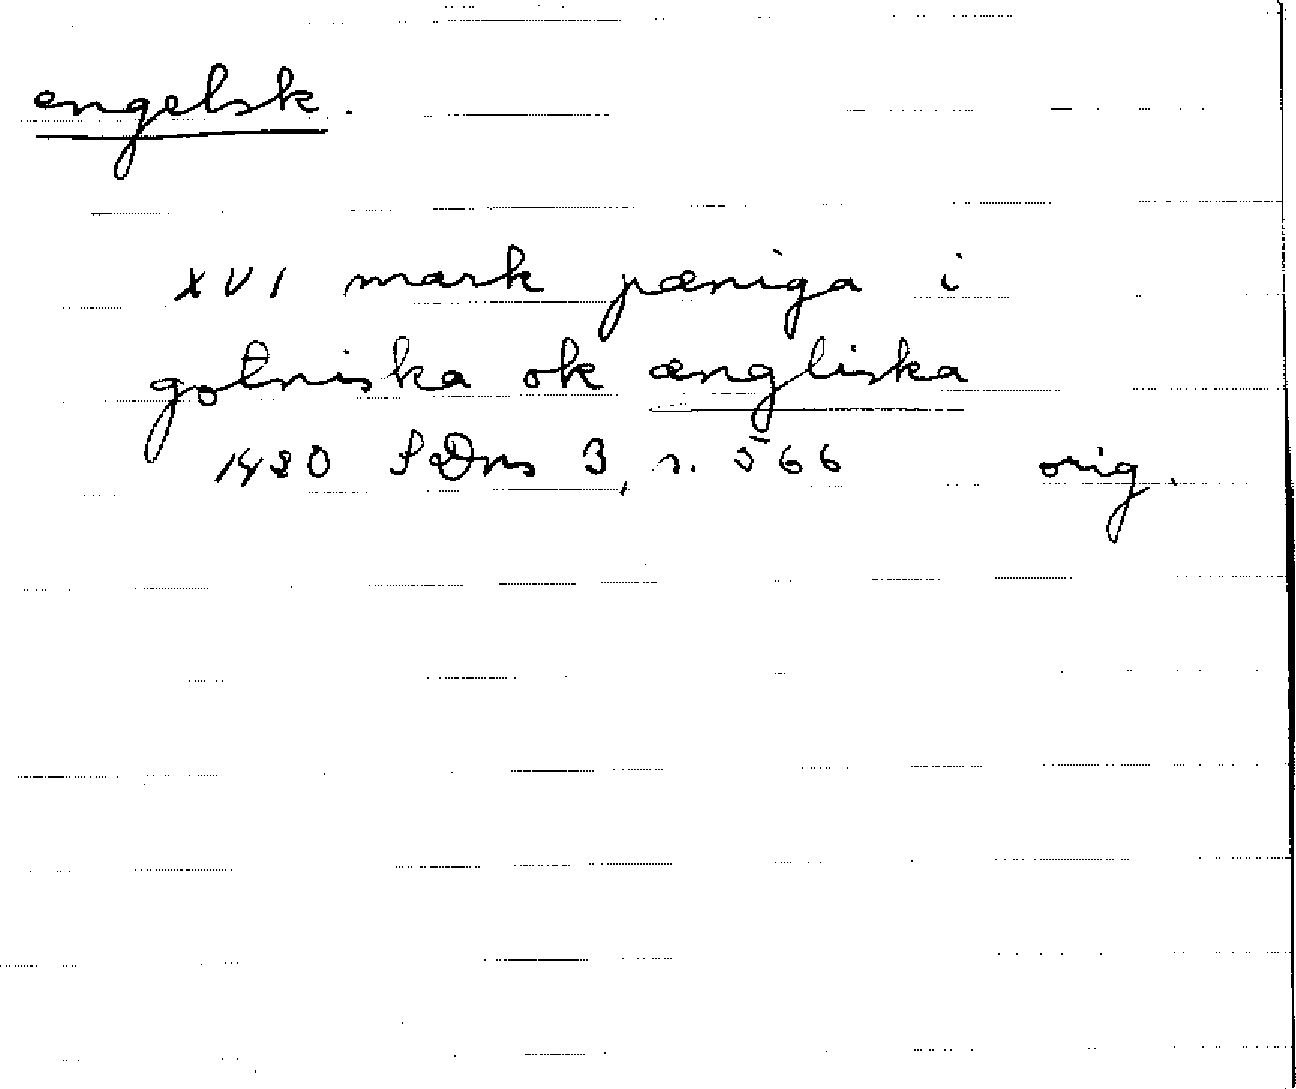 engelsk.
XVI mark pæniga i
gotniska ok ængliska
1420 SDns 3, s. 566 orig.